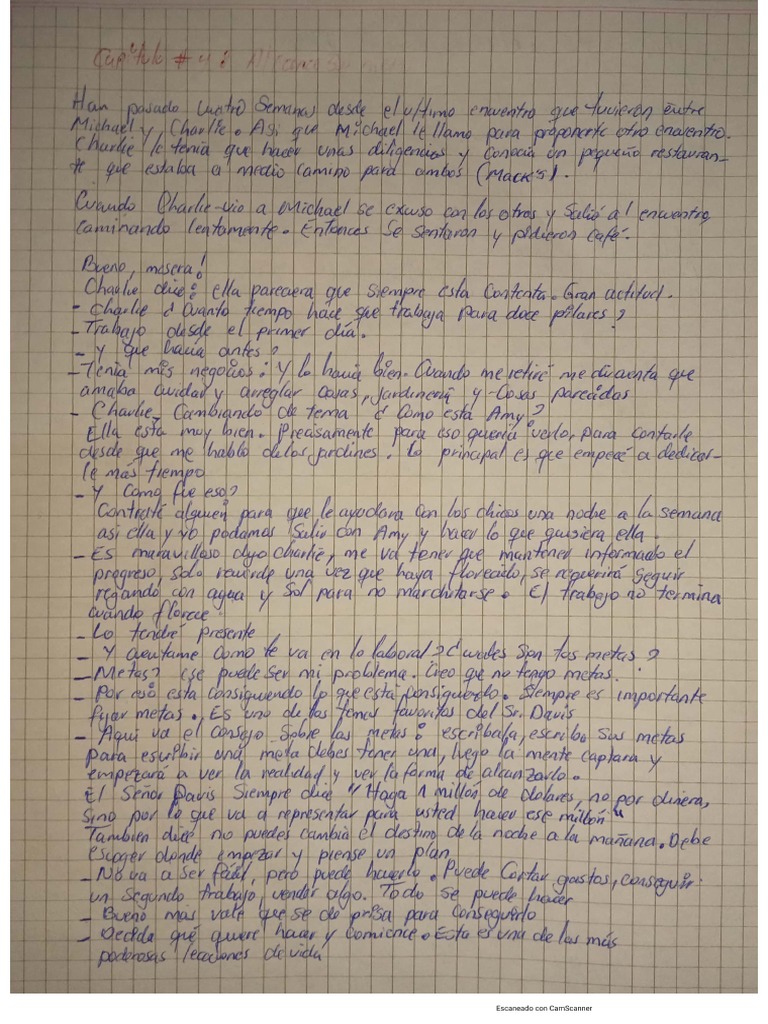 Capitulo # 4 :
Han pasado cuatro semanas desde el ultimo encuentro que tuvieron entre
Michael y, Charlie. Asi que Michael le llamo para proponerte otro encuentro.
Charlie le tenia que hacer unas diligencias y conocia un pequeño restauran-
te que estaba a medio camino para ambos (Mack's).
Cuando Charlie vio a Michael se excuso con los otros y salió al encuentro,
caminando lentamente. Entonces se sentaron y pidieron café.
Bueno, mesera!
Charlie dice: ella pareciera que siempre esta contenta. Gran actitud.
- Charlie ¿ Cuanto tiempo hace que trabaja para doce pilares?
- Trabajo desde el primer día.
- Y que hacia antes?
- Tenia mis negocios: Y lo hacia bien. Cuando me retiré me di cuenta que
amaba cuidar y arreglar casas, jardineria y cosas parecidas
- Charlie- Cambiando de tema ¿ Como esta Amy?
Ella está muy bien. Precisamente para eso queria verlo, para contarle
desde que me hablo de los jardines. Lo principal es que empecé a dedicar-
le más tiempo
- Y Como fue eso?
Contraté alguien para que le ayudara con los chicos una noche a la semana
asi ella y yo podamos salir con Amy y hacer lo que quisiera ella.
- Es maravilloso dijo Charlie, me va tener que mantener informado el
progreso, solo recuerde una vez que haya florecido, se requerirá seguir
regando con agua y sol para no marchitarse. El trabajo no termina
cuando florece
- Lo tendré presente
- Y cuéntame como te va en lo laboral? ¿ cuales son tus metas?
- Metas? ese puede ser mi problema. Creo que no tengo metas.
- Por eso esta consiguiendo lo que está consiguiendo. Siempre es importante
fijar metas. Es uno de los temas favoritos del Sr. Davis
- Aqui va el consejo sobre las metas: escribala, escribo sus metas
para escribir una meta debes tener una, luego la mente captara y
empezará a ver la realidad y ver la forma de alcanzarlo.
El Señor Davis siempre dice "Haga 1 millón de dolares, no por dinero,
sino por lo que va a representar para usted hacer ese millón"
Tambien dice no puedes cambia el destino de la noche a la mañana. Debe
escoger donde empezar y piense un plan
- No va a ser fácil, pero puede hacerlo. Puede cortar gastos, conseguir
un segundo trabajo, vender algo. Todo se puede hacer
- Bueno mas vale que se de prisa para conseguirlo
- Decida qué quiere hacer y comience. Esta es una de las más
poderosas lecciones de vida
Escaneado con CamScanner